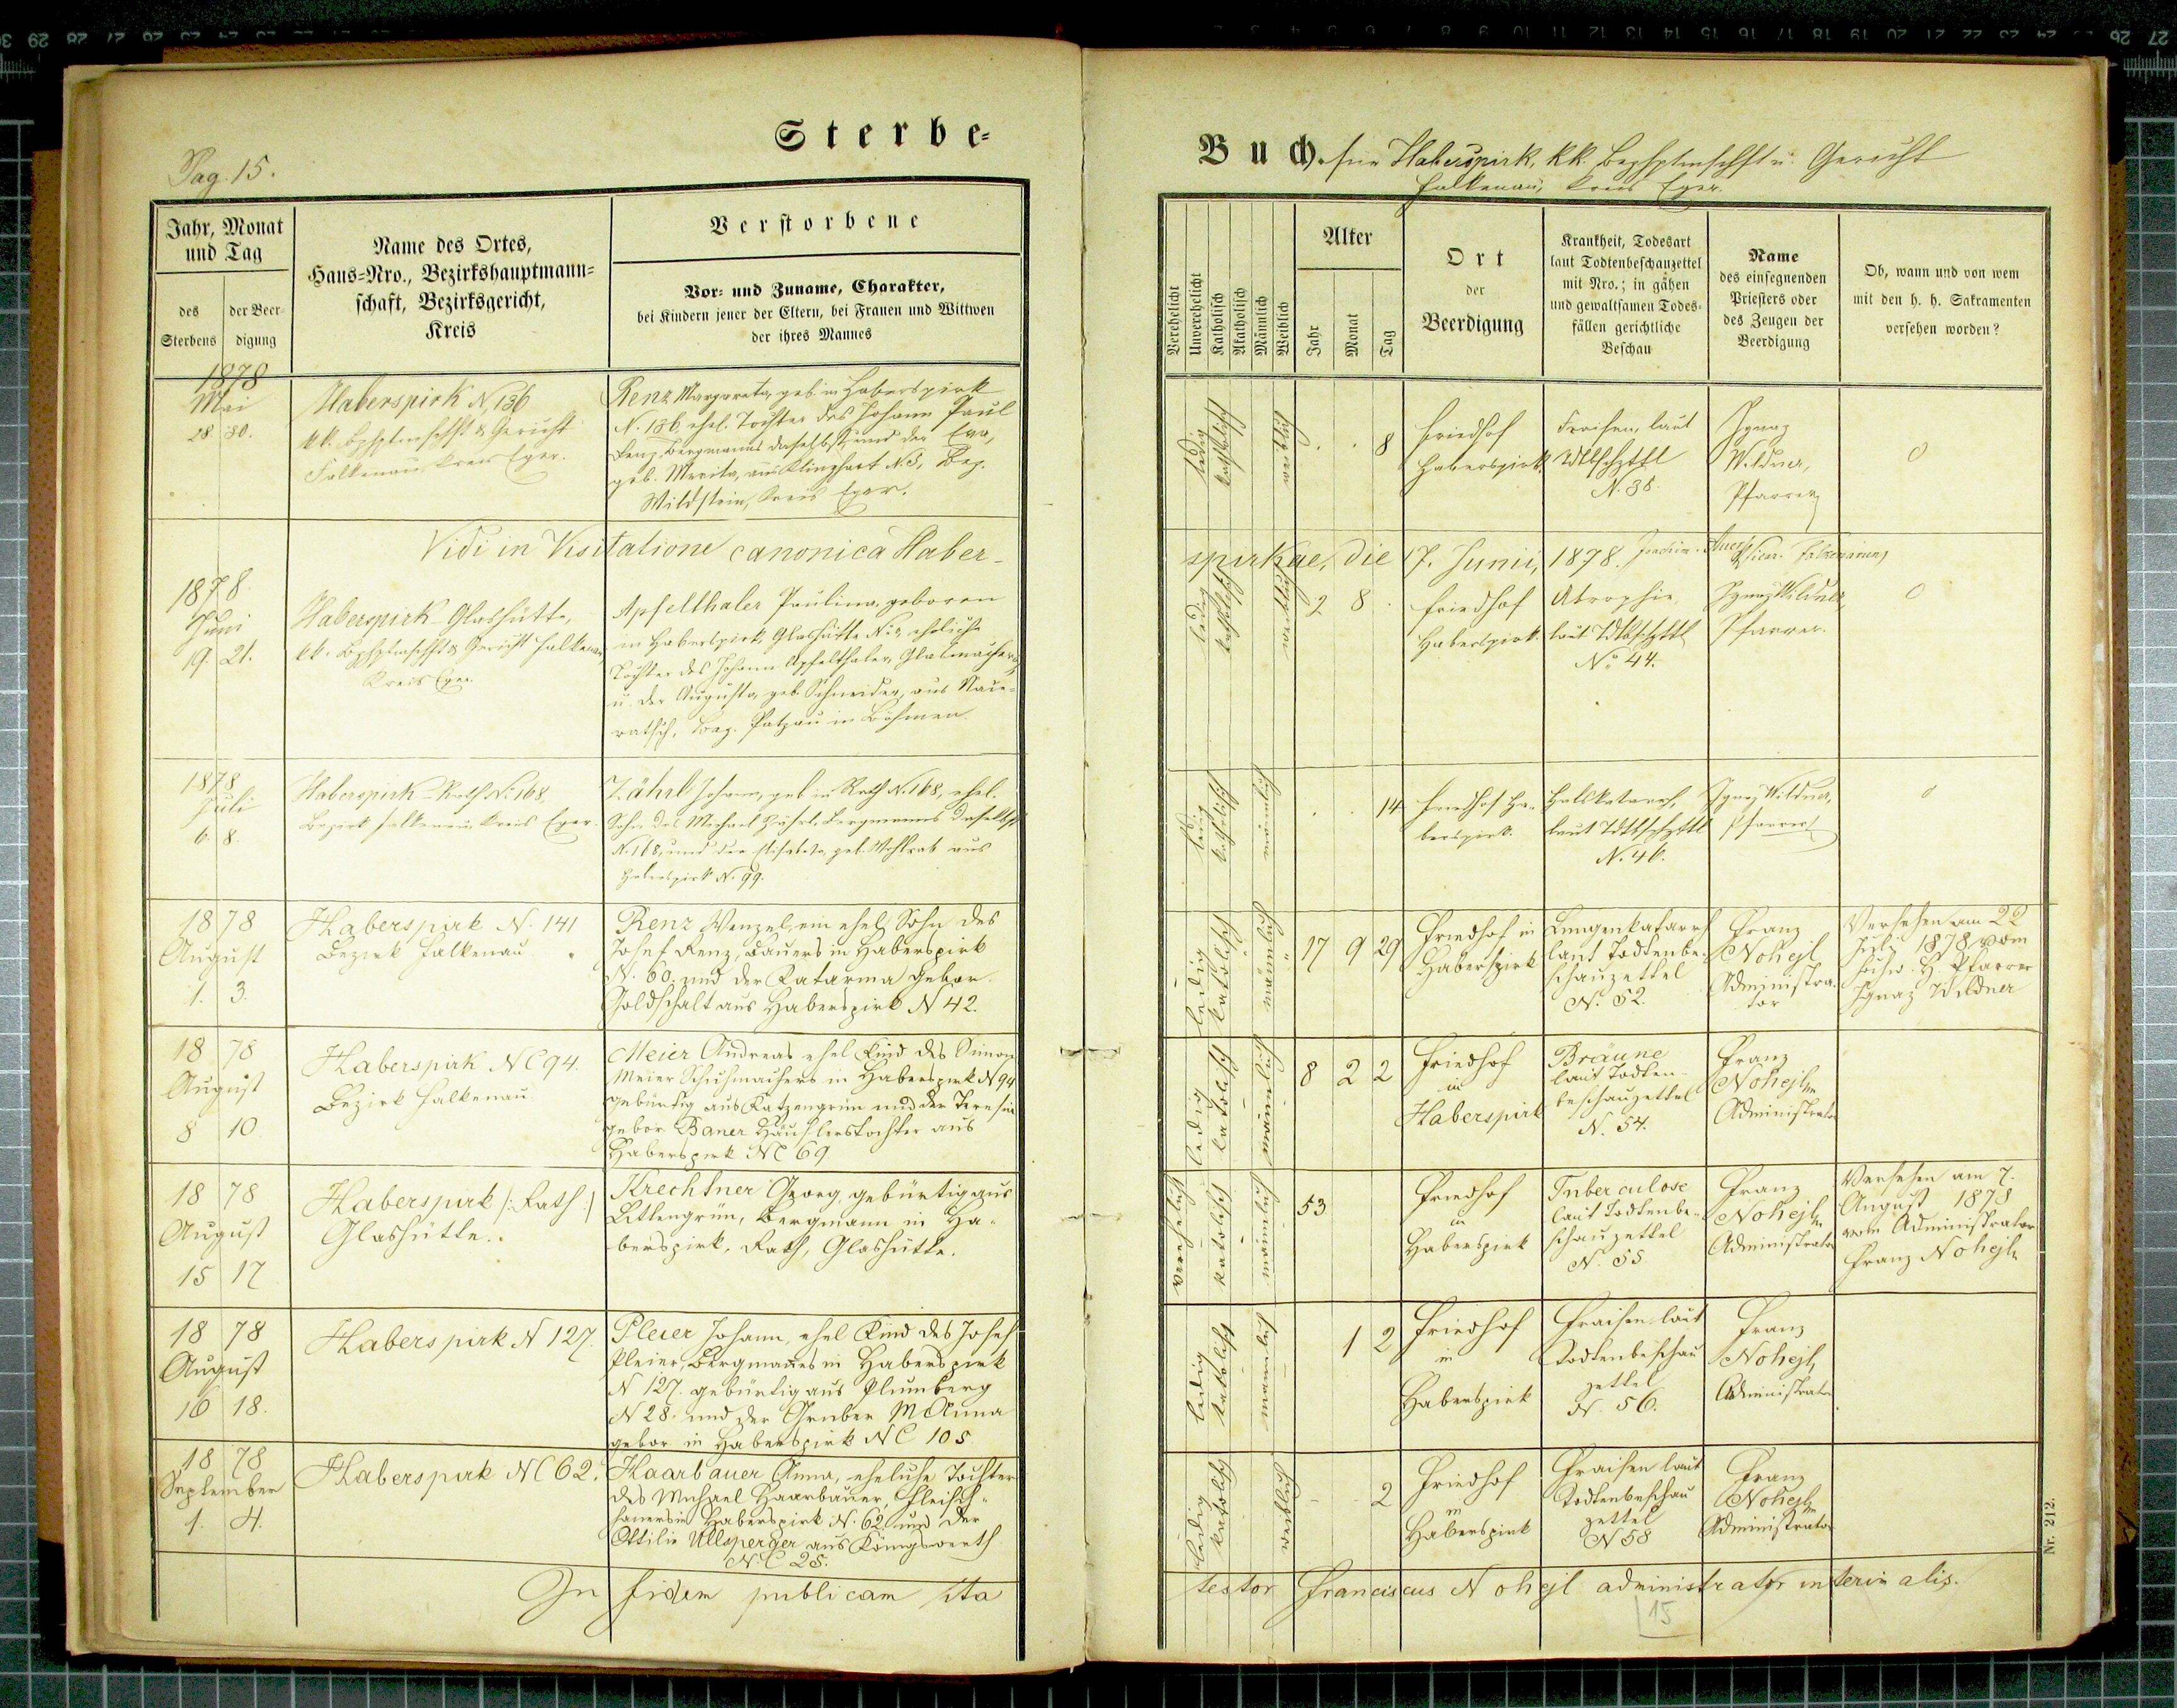 Sterbe-
Pag. 15.
Jahr, Monat
und Tag
des
Sterbens
der Beer-
digung
Name des Ortes,
Haus-Nro., Bezirkshauptmann-
schaft, Bezirksgericht,
Kreis
Verstorbene
Vor- und Zuname, Charakter,
bei Kindern jener der Eltern, bei Frauen und Wittwen
der ihres Mannes
1878
Mai
28 30.
Haberspirk N. 136
kk. Bzhptmschft & Gericht
Falkenau, Kreis Eger.
Renz Margareta, geb. in Haberspirk
N. 136, ehel. Tochter des Johann Paul
Renz, Bergmanns daselbst, und der Eva,
geb. aus Klinghart N. 3, Bez.
Wildstein, Kreis Eger.
Vidi in Visitatione canonica Haber-
1878
Juni
19. 21.
Haberspirk-Glashütte,
kk. Bzhptmschft & Gericht Falkenau,
Kreis Eger.
Apfelthaler Paulina, geboren
in Haberspirk, Glashütte N. eheliche
Tochter des Johann Apfelthaler, Glasmachers
u. der Augusta, geb. Schneider, aus
Bez. Patzau in Böhmen.
1878
Juli
6. 8.
Haberspirk-Rath N. 168,
Bezirk Falkenau, Kreis Eger.
Zährl Johann, geb. in Rath N. 168, ehel.
Sohn des Michael Zährl, Bergmanns daselbst
N. 168, und der Elisabeta, geb. aus
Haberspirk N. 99.
1878
August
1. 3.
Haberspirk N. 141
Bezirk Falkenau.
Renz Wenzel, ein ehel. Sohn des
Josef Renz, Bauers in Haberspirk
N. 60. und der Katarina gebor.
Goldschalt aus Haberspirk N 42.
18 78
August
8 10
Haberspirk NC 94.
Bezirk Falkenau
Meier Andreas ehel Kind des Simon
Meier Schuhmachers in Haberspirk N 94
gebürtig aus Katzengrün und der Teresia
gebor Baner Häuslerstochter aus
Haberspirk NC 69
18 78
August
15 17
Haberspirk /: Rath :/
Glashütte.
Krechtner Georg, gebürtig aus
Littengrün, Bergmann in Ha-
berspirk, Rath, Glashütte.
18 78
August
16 18.
Haberspirk N 127.
Pleier Johann, ehel Kind des Josef
Pleier, Bergmanes in Haberspirk
N 127. gebürtig aus Plumberg
N 28. und der Gruber M Anna
gebor in Haberspirk NC 105
18 78
September
1. 4.
Haberspirk NC 62.
Haarbauer Anna, eheliche Tochter
des Michael Haarbauer, Fleisch-
hauers in Haberspirk N. 62. und der
Ottilie Ullsperger aus Königswerth
N.C 25.
In fidem publicam ita
Buch. für Haberspirk, kk. Bezhptmschft u. Gericht
Falkenau, Kreis Eger.
Verehelicht
Unverehelicht
Katholisch
Akatholisch
Männlich
Weiblich
Alter
Jahr
Monat
Tag
Ort
der
Beerdigung
Krankheit, Todesart
laut Todtenbeschauzettel
mit Nro.; in gähen
und gewaltsamen Todes-
fällen gerichtliche
Beschau
Name
des einsegnenden
Priesters oder
des Zeugen der
Beerdigung
Ob, wann und von wem
mit den h. h. Sakramenten
versehen worden?
ledig
katholisch
weiblich
8
Friedhof
Haberspirk.
Fraisen, laut
Tdtbschzttl
N. 38.
Ignaz
Wildner,
Pfarrer
0
spirkae, die 17. Junii, 1878. Joachim
ledig
katholisch
weiblich
2 8
Friedhof
Haberspirk.
Atrophie
laut Tdtbschzttl
No 44.
Ignaz Wildner,
Pfarrer.
0
ledig
katholisch
männlich
14
Friedhof Ha-
berspirk.
Halskatarrh,
laut Tdtbschzttl
N. 46.
Ignaz Wildner,
Pfarrer
0
ledig
katolisch
männlich
17 9 29
Friedhof in
Haberspirk
Lungenkatarrh
laut Todtenbe-
schauzettel
N. 52.
Franz
Nohejl
Administra-
tor
Versehen am 22
Juli 1878 vom
hochw. H. Pfarrer
Ignaz Wildner
ledig
katolisch
männlich
8 2 2
Friedhof
in
Haberspirk
Bräune
laut Todten-
beschauzettel
N. 54.
Franz
Nohejl
Administrator
verehelicht
katolisch
männlich
53
Friedhof
in
Haberspirk
Tuberculose
laut Todtenbe-
schauzettel
N. 55
Franz
Nohejl
Administrator
Versehen am 7.
August 1878
vom Administrator
Franz Nohejl
ledig
katolisch
männlich
1 2
Friedhof
in
Haberspirk
Fraisen laut
Todtenbeschau
zettel
N. 56.
Franz
Nohejl
Administrator
ledig
katolisch
weiblich
2
Friedhof
in
Haberspirk
Fraisen laut
Todtenbeschau
zettel
N 58
Franz
Nohejl
Administrator
testor Franciscus Nohejl administrator interimalis.
15
Nr. 212.